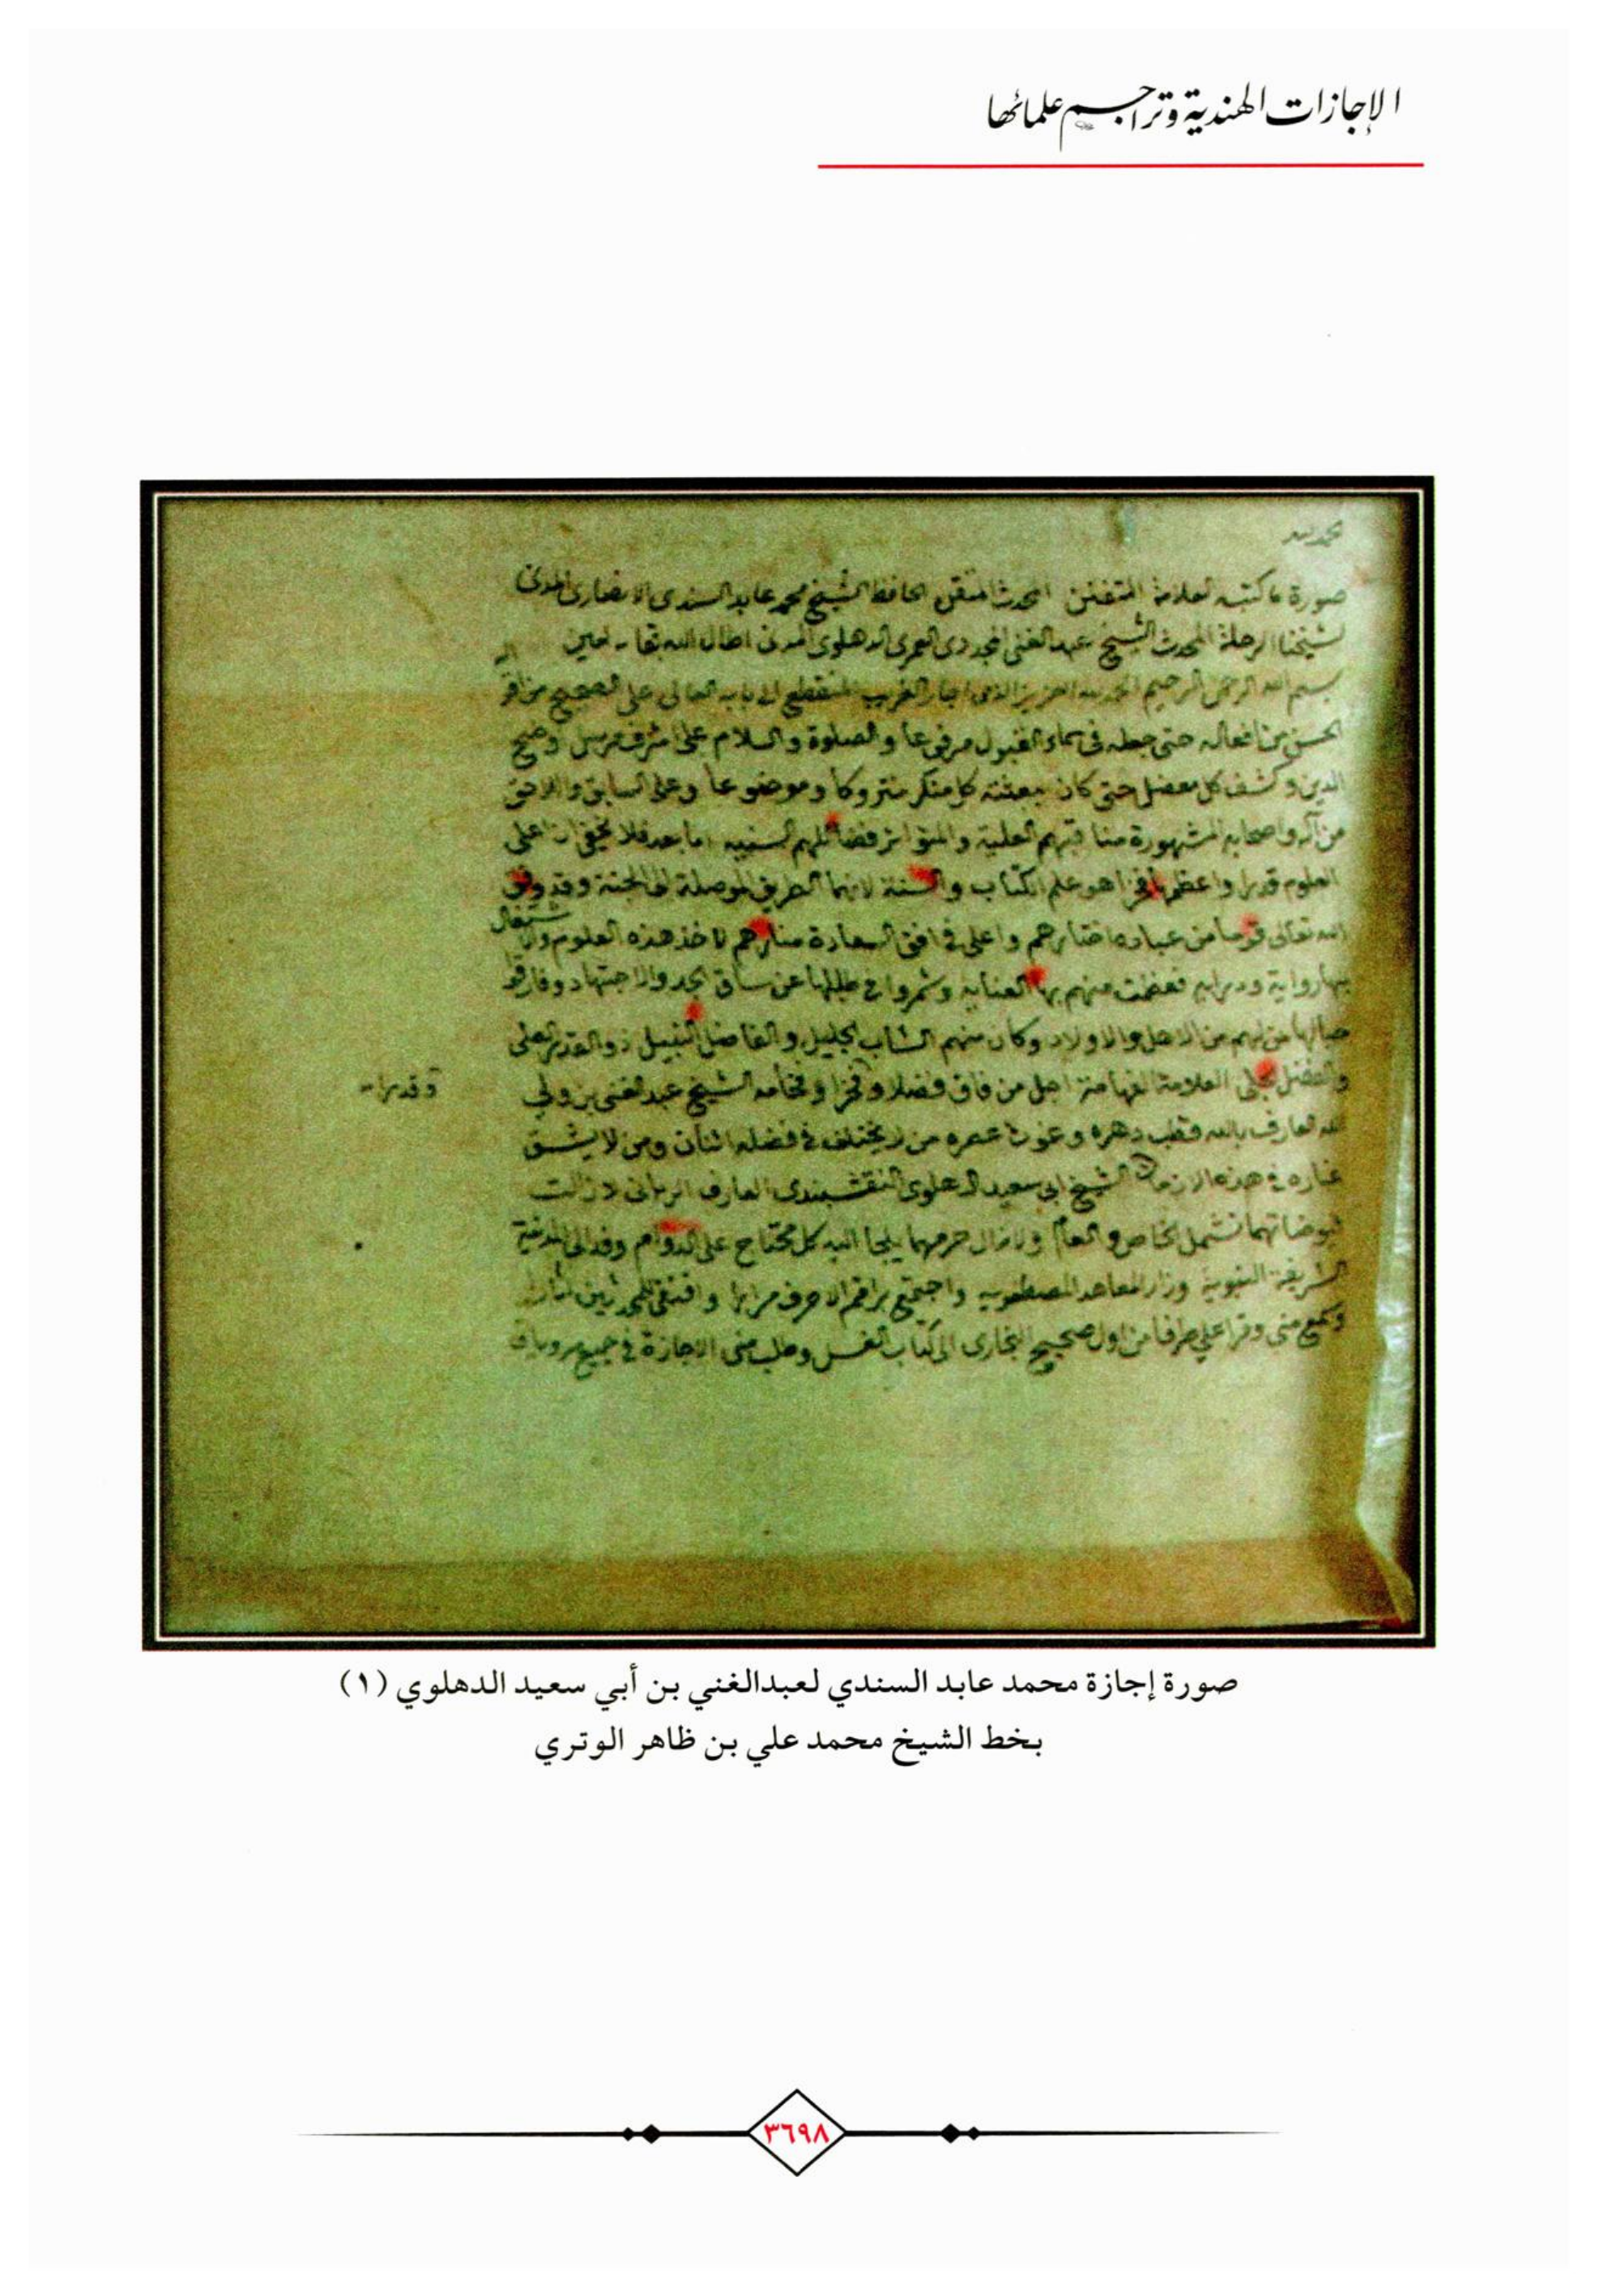 الإجازات الهندية وتراجم علمائها
الحمد لله
صورة ما كتبه العلامة المتفنن المحدث المتقن الحافظ الشيخ محمد عابد السندى الانصارى المدنى
لشيخنا الرحلة المحدث الشيخ عبد الغنى المجددى العمرى الدهلوى المدنى اطال الله بقاه امين
بسم الله الرحمن الرحيم الحمد لله العزيز الذى اجاز الغريب المنقطع الى بابه العالى على الصحيح من
الحسن من افعاله حتى جعله فى سماء القبول مرفوعا والصلوة والسلام على اشرف مرسل وضح
الدين وكشف كل معضل حتى كان ببعثته كل منكر متروكا وموضوعا وعلى السابق واللاحق
من آله واصحابه المشهورة مناقبهم العلية والمتواتر فضائلهم السنيه اما بعد فلا يخفى ان اعلى
العلوم قدرا واعظمها فخرا هو علم الكتاب والسنة لانهما الطريق الموصلة الى الجنة وقد وفق
الله تعالى قوما من عباده اختارهم واعلى فى افق السعادة منارهم لاخذ هذه العلوم والاشتغال
بها رواية ودراية فعظمت منهم بها العنايه وشمروا فى طلبها عن ساق الجد والاجتهاد وفارقوا
من لهم من الاهل والاولاد وكان منهم الشاب الجليل والفاضل النبيل ذو القدر العلى
والفضل الجلى العلامة الفهامة اجل من فاق فضلا وفخرا وفخامه الشيخ عبد الغنى بن ولي
وقدرا
الله العارف بالله قطب دهره وغوث عصره من لا يختلف فى فضله اثنان ومن لا يشق
غباره فى هذه الازمان الشيخ ابى سعيد الدهلوى النقشبندى العارف الربانى لا زالت
فيوضاتهما تشمل الخاص والعام ولا زال حرمهما يلجا اليه كل محتاج على الدوام وفد الى المدينة
الشريفة النبوية وزار المعاهد المصطفويه واجتمع براقم الاحرف مرارا واقتفى للمحدثين اثارا
وسمع منى وقرا علي طرفا من اول صحيح البخارى الى كتاب الغسل وطلب منى الاجازة فى جميع مروياتى
صورة إجازة محمد عابد السندي لعبدالغني بن أبي سعيد الدهلوي (١)
بخط الشيخ محمد علي بن ظاهر الوتري
٣٦٩٨